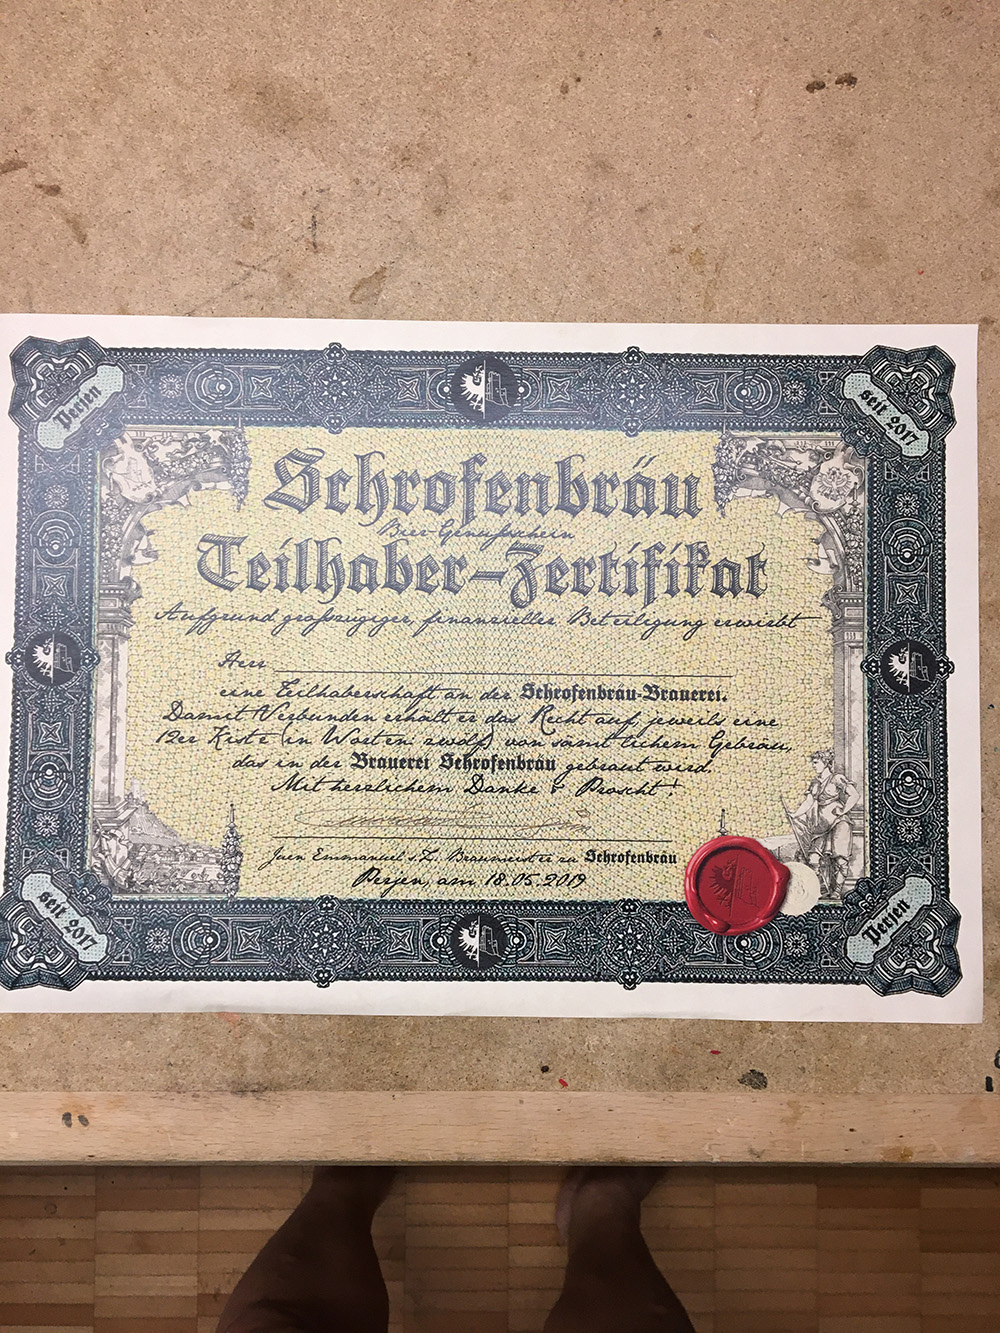 Perjen
seit 2017
Schrofenbräu
Bier-Genußschein
Teilhaber-Zertifikat
Aufgrund großzügiger, finanzieller Beteiligung erwirbt
Herr
eine Teilhaberschaft an der Schrofenbräu-Brauerei.
Damit Verbunden erhält er das Recht auf, jeweils eine
12er Kiste (in Worten: zwölf) von sämtlichem Gebräu,
das in der Brauerei Schrofenbräu gebraut wird.
Mit herzlichem Danke & Proscht!
Juen Emmanuel s.Z. Braumeister zu Schrofenbräu
Perjen, am 18.05.2019
seit 2017
Perjen